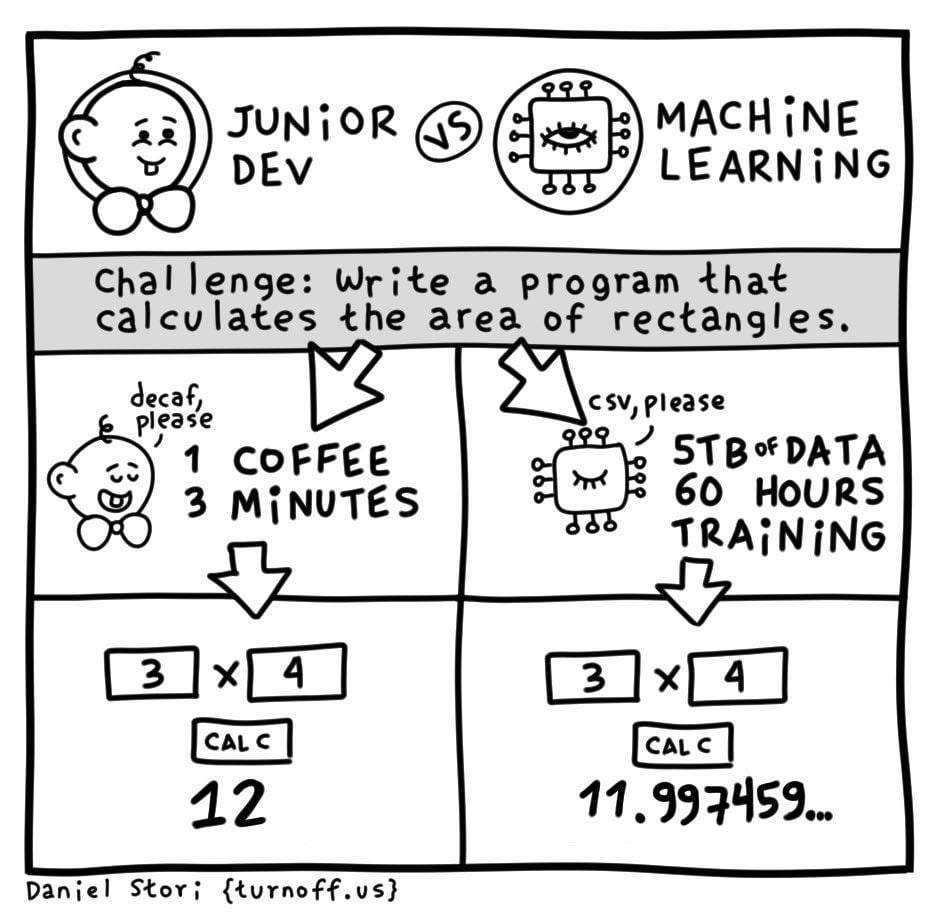 JUNiOR
DEV
VS
MACHiNE
LEARNiNG
Challenge: Write a program that
calculates the area of rectangles.
decaf,
please
1 COFFEE
3 MiNUTES
csv, please
5TB OF DATA
60 HOURS
TRAiNiNG
3 x 4
CALC
12
3 x 4
CALC
11.997459...
Daniel Stori {turnoff.us}